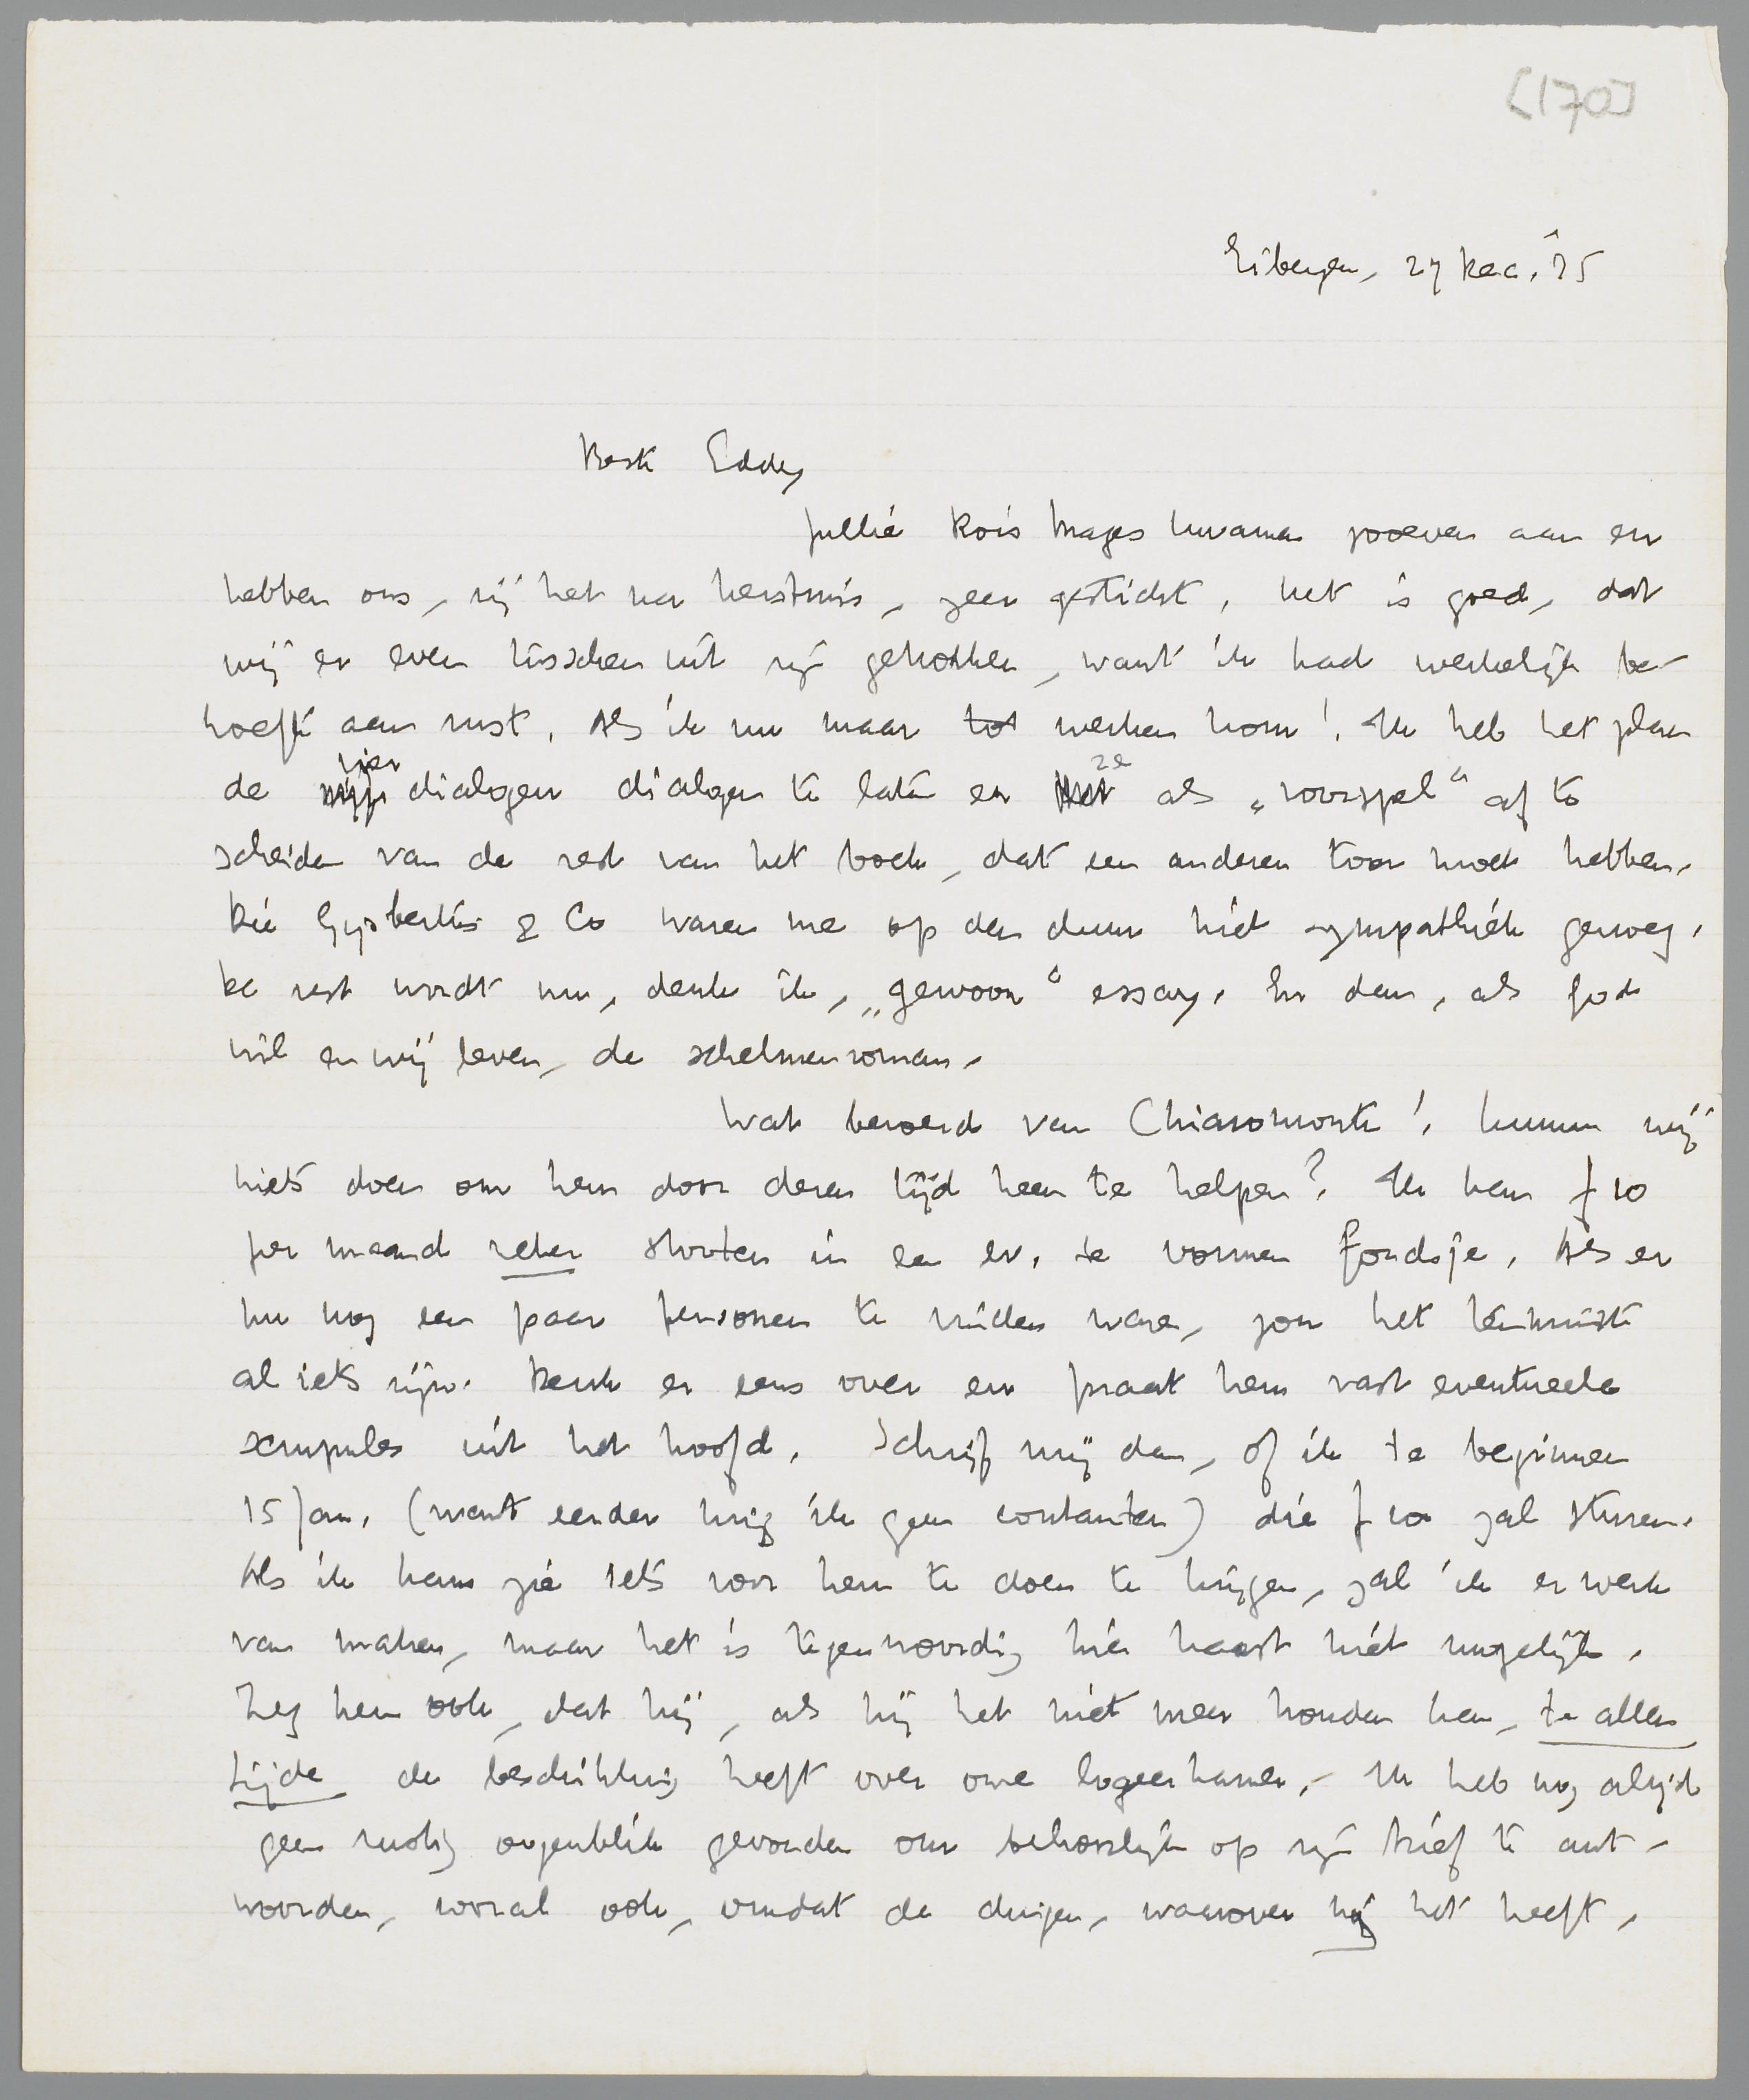 [170]
Eibergen, 27 Dec. '35
Beste Eddy
Jullie Rois Mages kwamen zooeven aan en
hebben ons, zij het na kerstmis, zeer gesticht. Het is goed, dat
wij er even tusschen uit zijn getrokken, want ik had werkelijk be-
hoefte aan rust. Als ik nu maar tot werken kom! Ik heb het plan
de vier dialogen dialogen te laten en ze als „voorspel" af te
scheiden van de rest van het boek, dat een anderen toon moet hebben.
Die Gysbertus & Co waren me op den duur niet sympathiek genoeg.
De rest wordt nu, denk ik, „gewoon" essay. En dan, als God
wil en wij leven, de schelmenroman.
Wat beroerd van Chiaromonte! Kunnen wij
niets doen om hem door dezen tijd heen te helpen? Ik kan f 10
per maand zeker storten in een ev. te vormen fondsje. Als er
nu nog een paar personen te vinden waren, zou het tenminste
al iets zijn. Denk er eens over en praat hem vast eventueele
scrupules uit het hoofd. Schrijf mij dan, of ik te beginnen
15 Jan. (want eerder krijg ik geen contanten) die f 10 zal sturen.
Als ik kans zie iets voor hem te doen te krijgen, zal ik er werk
van maken, maar het is tegenwoordig hier haast niet mogelijk.
Zeg hem ook, dat hij, als hij het niet meer houden kan, te allen
tijde de beschikking heeft over onze logeerkamer. – Ik heb nog altijd
geen rustig oogenblik gevonden om behoorlijk op zijn brief te ant-
woorden, vooral ook, omdat de dingen, waarover hij het heeft,